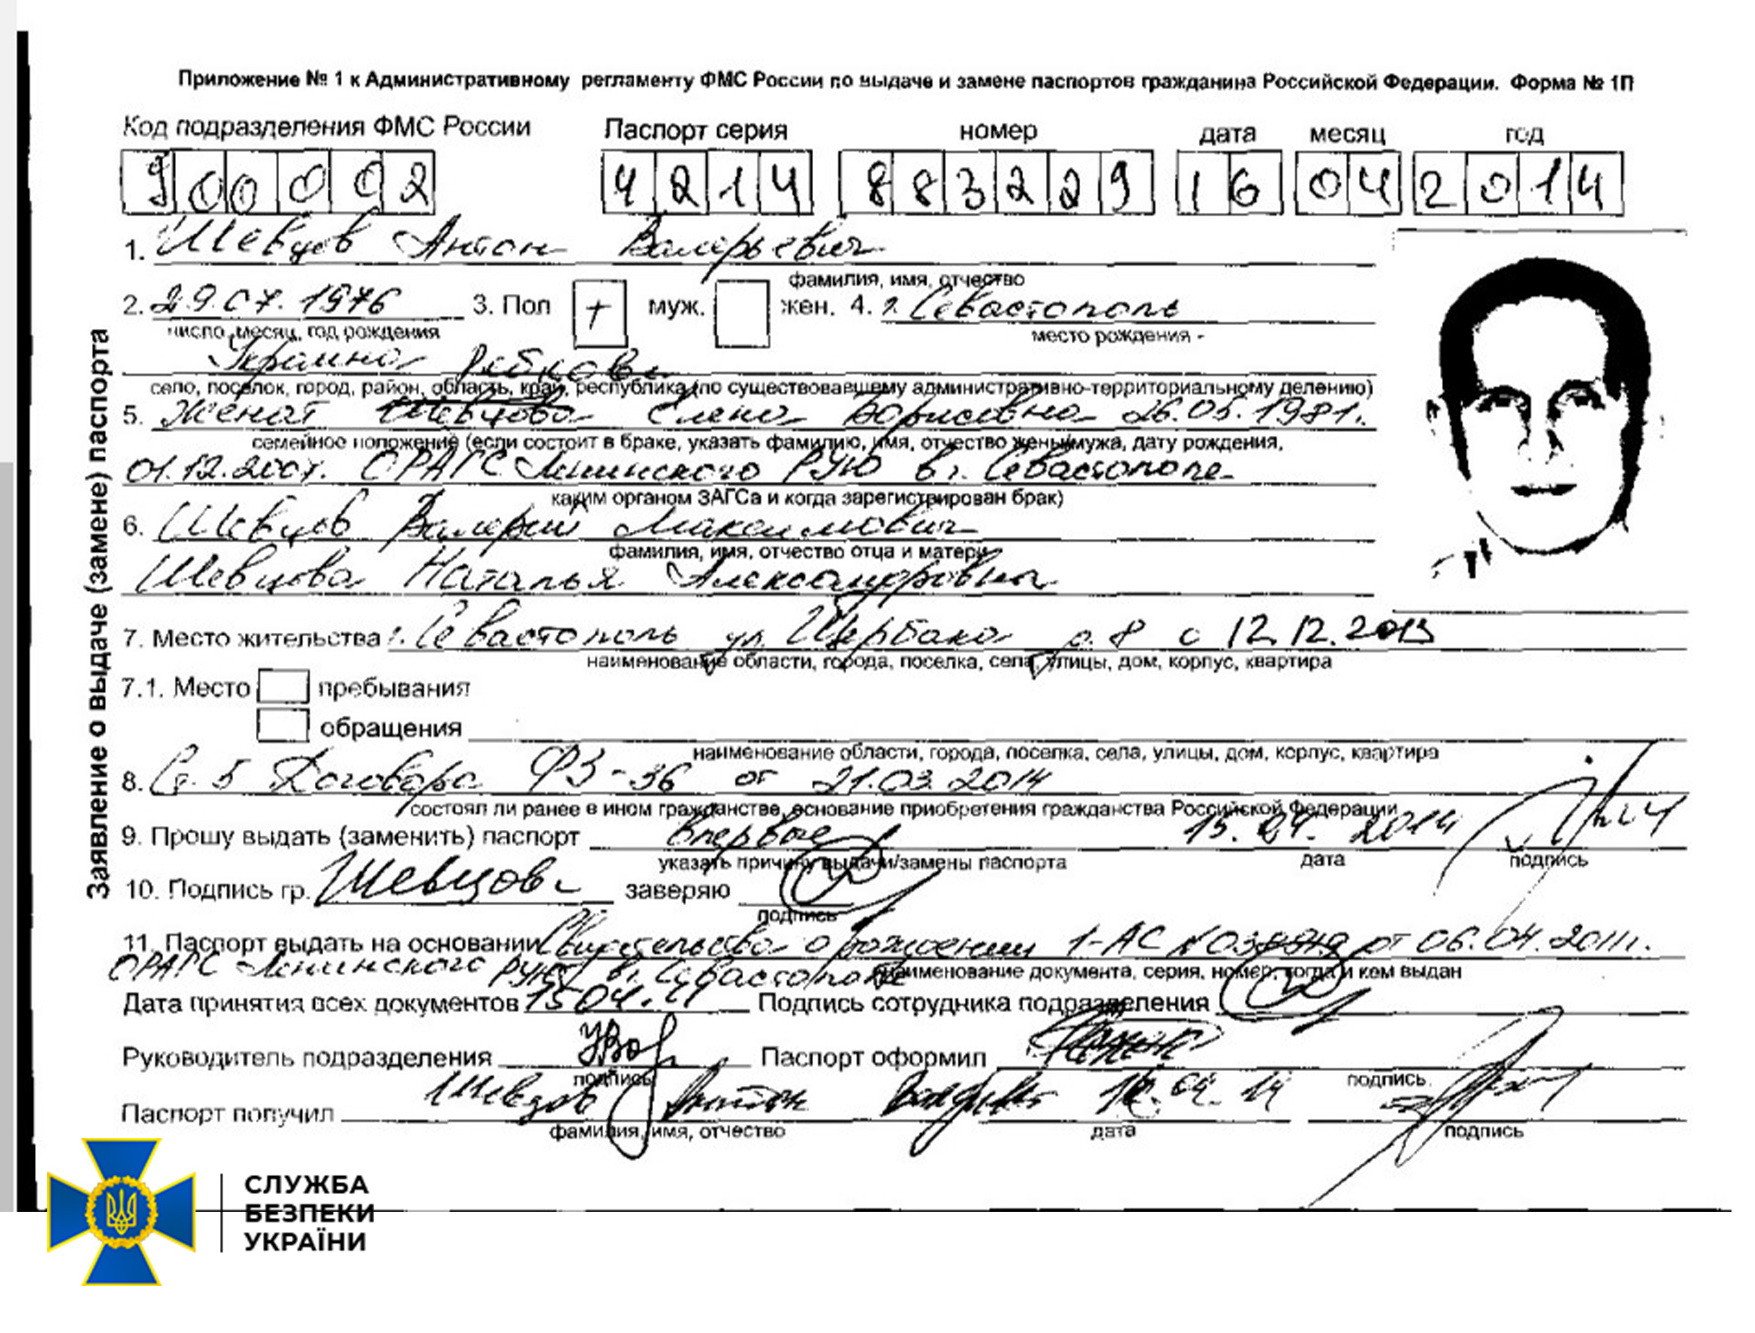 Приложение № 1 к Административному регламенту ФМС России по выдаче и замене паспортов гражданина Российской Федерации. Форма № 1П
Код подразделения ФМС России Паспорт серия номер дата месяц год
900002 4214 883229 16 04 2014
1. Шевцов Антон Валерьевич
фамилия, имя, отчество
2. 29.07.1976 3. Пол + муж. жен. 4. г. Севастополь
число, месяц, год рождения место рождения -
Украина
село, поселок, город, район, область, край, республика (по существовавшему административно-территориальному делению)
5. Женат Шевцова Елена Борисовна 26.05.1981г.
семейное положение (если состоит в браке, указать фамилию, имя, отчество жены/мужа, дату рождения,
01.12.2007. ОРАГС Ленинского РУЮ в г. Севастополе
каким органом ЗАГСа и когда зарегистрирован брак)
6. Шевцов Валерий Максимович
фамилия, имя, отчество отца и матери
Шевцова Наталья Александровна
7. Место жительства г. Севастополь ул. Щербака д. 8 с 12.12.2013
наименование области, города, поселка, села, улицы, дом, корпус, квартира
7.1. Место пребывания
обращения
наименование области, города, поселка, села, улицы, дом, корпус, квартира
8. Ст. 5 Договора ФЗ-36 от 21.03.2014
состоял ли ранее в ином гражданстве, основание приобретения гражданства Российской Федерации
9. Прошу выдать (заменить) паспорт впервые 15.04.2014
указать причину выдачи/замены паспорта дата подпись
10. Подпись гр. Шевцов заверяю
подпись
11. Паспорт выдать на основании Свидетельства о рождении 1-АС от 06.04.2011г.
наименование документа, серия, номер, когда и кем выдан
ОРАГС Ленинского в г. Севастополе
Дата принятия всех документов 15.04. Подпись сотрудника подразделения
Руководитель подразделения Паспорт оформил
подпись подпись
Паспорт получил Шевцов Антон 04.14
фамилия, имя, отчество дата подпись
Заявление о выдаче (замене) паспорта
СЛУЖБА
БЕЗПЕКИ
УКРАЇНИ